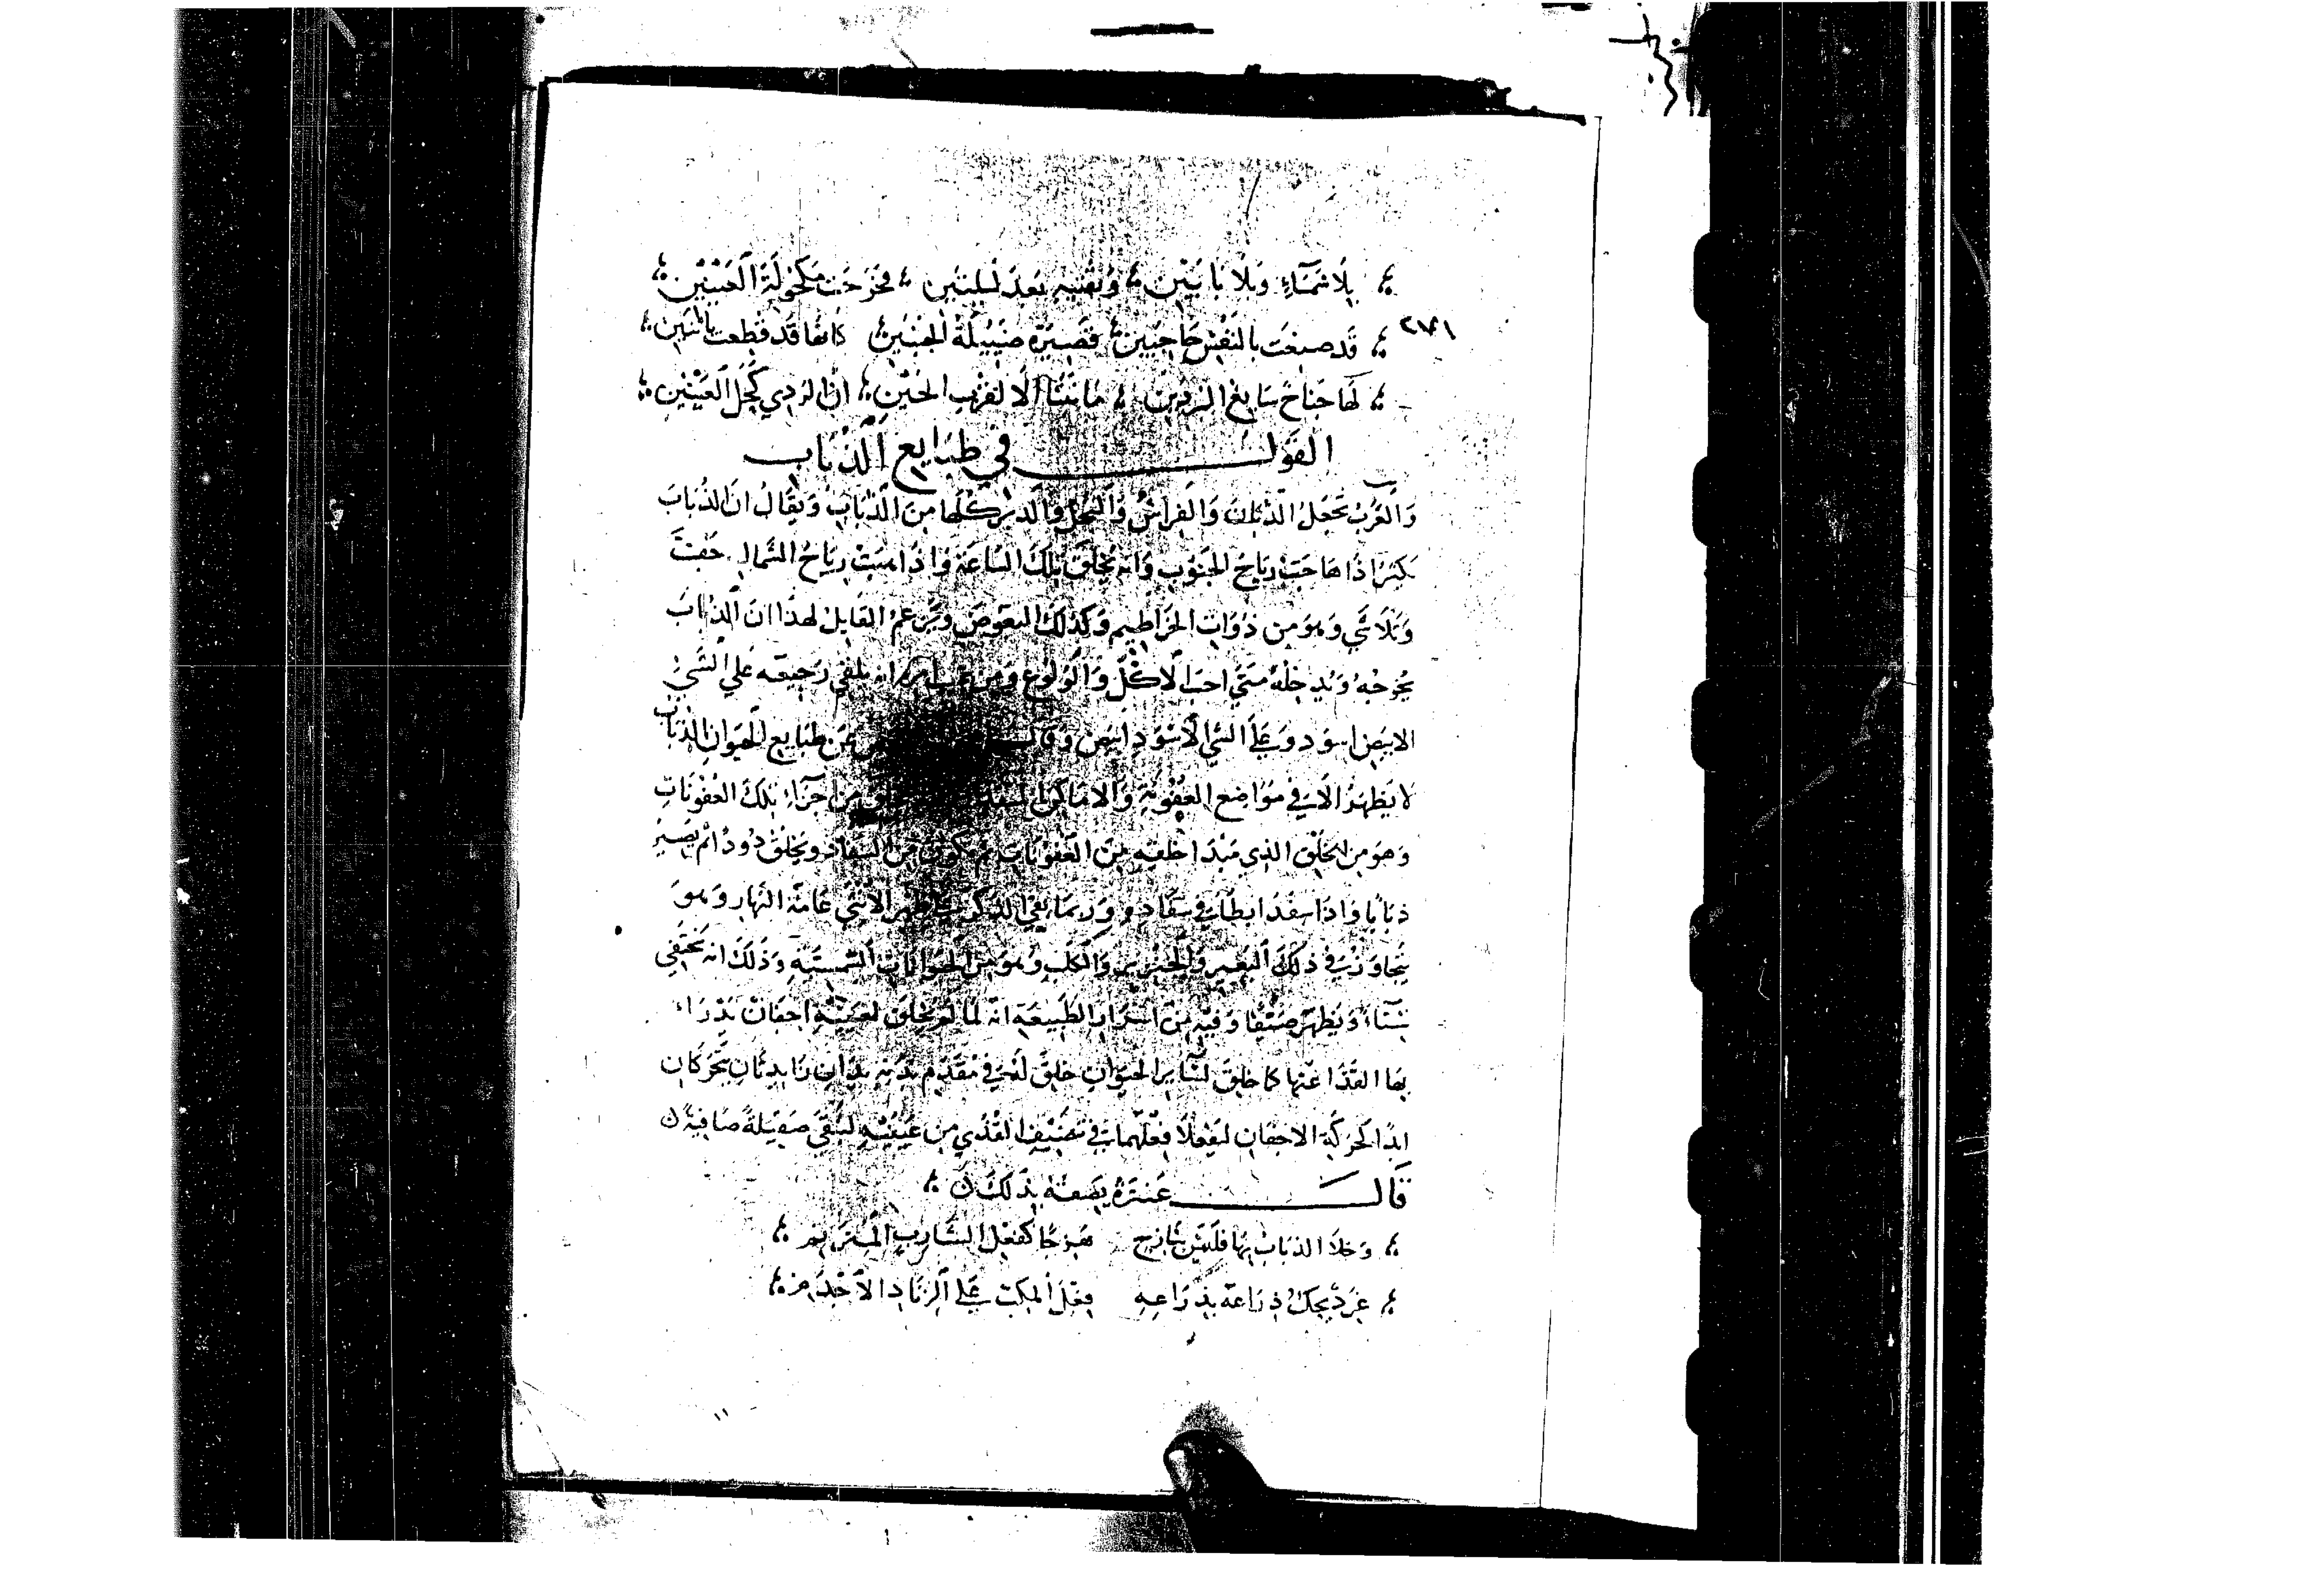 بِلَا شَمَّاءٍ وَبَلَا بَابَيْنِ ؛ وَنَقْبِهِ بَعْدَ لَيْلَتَينِ ؛ فَخَرَجَتْ مَكْحُولَةَ الْعَيْنَيْنِ ؛
قَد صبغَت بالنَّفْسِ حَاجِبَيْنِ ؛ قَصِيرَة ضَئِيلَةُ الجَنْبَيْنِ ؛ كانها قد قُطِعت باثنين ؛
لَهَا جَنَاحٌ سَابِغُ البردين ؛ مَا نُبْتَا الا لقرب الحَيْنِ ؛ انّ الرّدي كُحْلُ العَيْنَيْنِ ؛
القول في طبايع الذُّبَابِ
وَالعَرَبُ تَجْعَلُ الذّبَانَ وَالفراشَ وَالنَّحْلَ وَالدَبْرَ كلَّها مِن الذُّبَابِ وَيُقَالُ ان الذُّبَابَ
يكثر اذا هَاجَتْ رِيَاحُ الجَنُوبِ وَانه يُخلَقُ تِلْكَ السَّاعَةَ وَاذا هَبَتْ رِيَاحُ الشّمال خَفَّتَ
وَتَلَاشَي وَهو من ذَوَاتِ الخَرَاطِيمِ وَكَذَلك البَعُوض وَيَزعمُ القَايل لهذا انَّ الذبابَ
يُخرجهُ وَيُدخلهُ متَي احبَّ الاكْلَ وَالوُلوغَ وَمِن انه يلقي رَجِيعَه عَلي الشَّيْ
الابيَض اسوَد وَعَلَي الشي الاسْوَد ابيَض وَقَال عَن طبَايع الحَيَوان الذباب
لا يَظهَرُ الا في مَوَاضع العُفُونَةِ وَالامَاكن مِن اجزَاء تلكَ العُفُونَاتِ
وَهوَ مِن الخَلْقِ الذي مَبْدَا خلقه مِنَ العُفُونَاتِ ثم يكون من السفاد ويخلق دُودًا ثمّ يَصِيرُ
ذبَابًا وَاذا سفدَ ابطَأ في سفَادهِ وَرُبمَا بَقي الذكر عَلَى ظهر الانثَي عَامَّة النّهَار وَهوَ
يتجَاوَزُ في ذلكَ البَعيرَ وَالخِنزِيرَ وَالكَلبَ وَهوَ من الحَيَوَانَاتِ الشمسيّةِ وَذَلكَ انه يَختَفِي
شتَآءً وَيَظهَرُ صَيْفًا وَفيهِ مِنْ اسْرَارِ الطَّبِيعَةِ انه لَمّا لَم يُخلَقَ لعَيْنَيْهِ اجفَانٌ يَدْرَاءُ
بهَا القَذَا عَنها كما خلق لسَايرِ الحَيَوَان خلقَ لَهُ في مقَدَّم بَدَنه يَدَان زَايدتَانِ تتحركان
ابدًا كحركة الاجفان ليَفعَلَا فعلهَمَا في تَصْفِيَة القَذَي من عَيْنَيْهِ لتَبْقَي صَقِيلَةً صَافيةً ن
قَالَ عَنتَرَةُ يَصِفهُ بذلك ن ؛
وَخلَا الذبَابُ بهَا فَلَيْسَ بَنازح هَزِجًا كَفعْلِ الشَّارِب المُتَرَنِّم ؛
غَرِدٌ يحكُ ذِرَاعهُ بذرَاعهِ فِعْلَ المكب عَلي الزنَاد الاجْذَم ؛